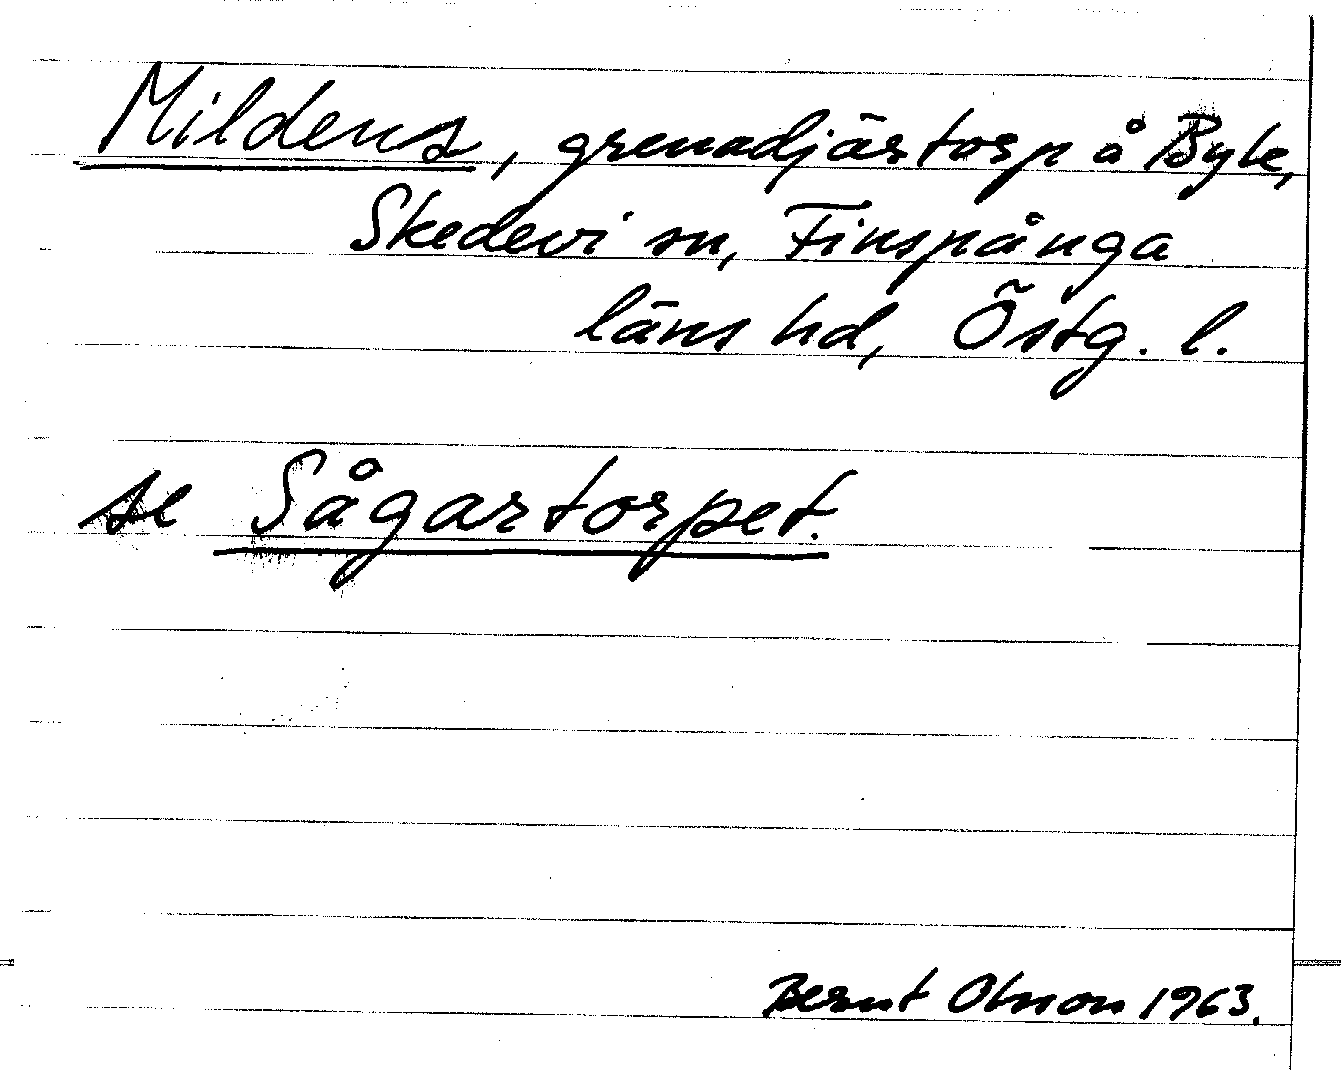 Mildens, grenadjärstorp å Byle,
Skedevi sn, Finspånga
läns hd, Östg. l.
se Sågartorpet.
Bernt Olsson 1963.